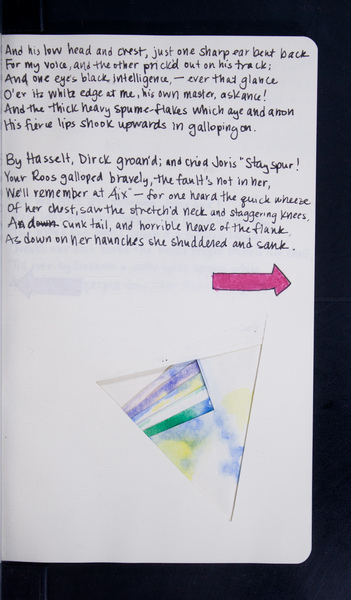 And his low head and crest, just one sharp ear bent back
For my voice, and the other prick'd out on his track;
And one eye's black intelligence, — ever that glance
O'er its white edge at me, his own master, askance!
And the thick heavy spume-flakes which aye and anon
His fierce lips shook upwards in galloping on.
By Hasselt, Dirck groan'd; and cried Joris "Stay spur!
Your Roos galloped bravely, the fault's not in her,
We'll remember at Aix" — for one heard the quick wheeze
Of her chest, saw the stretch'd neck and staggering knees,
And down sunk tail, and horrible heave of the flank,
As down on her haunches she shuddered and sank.